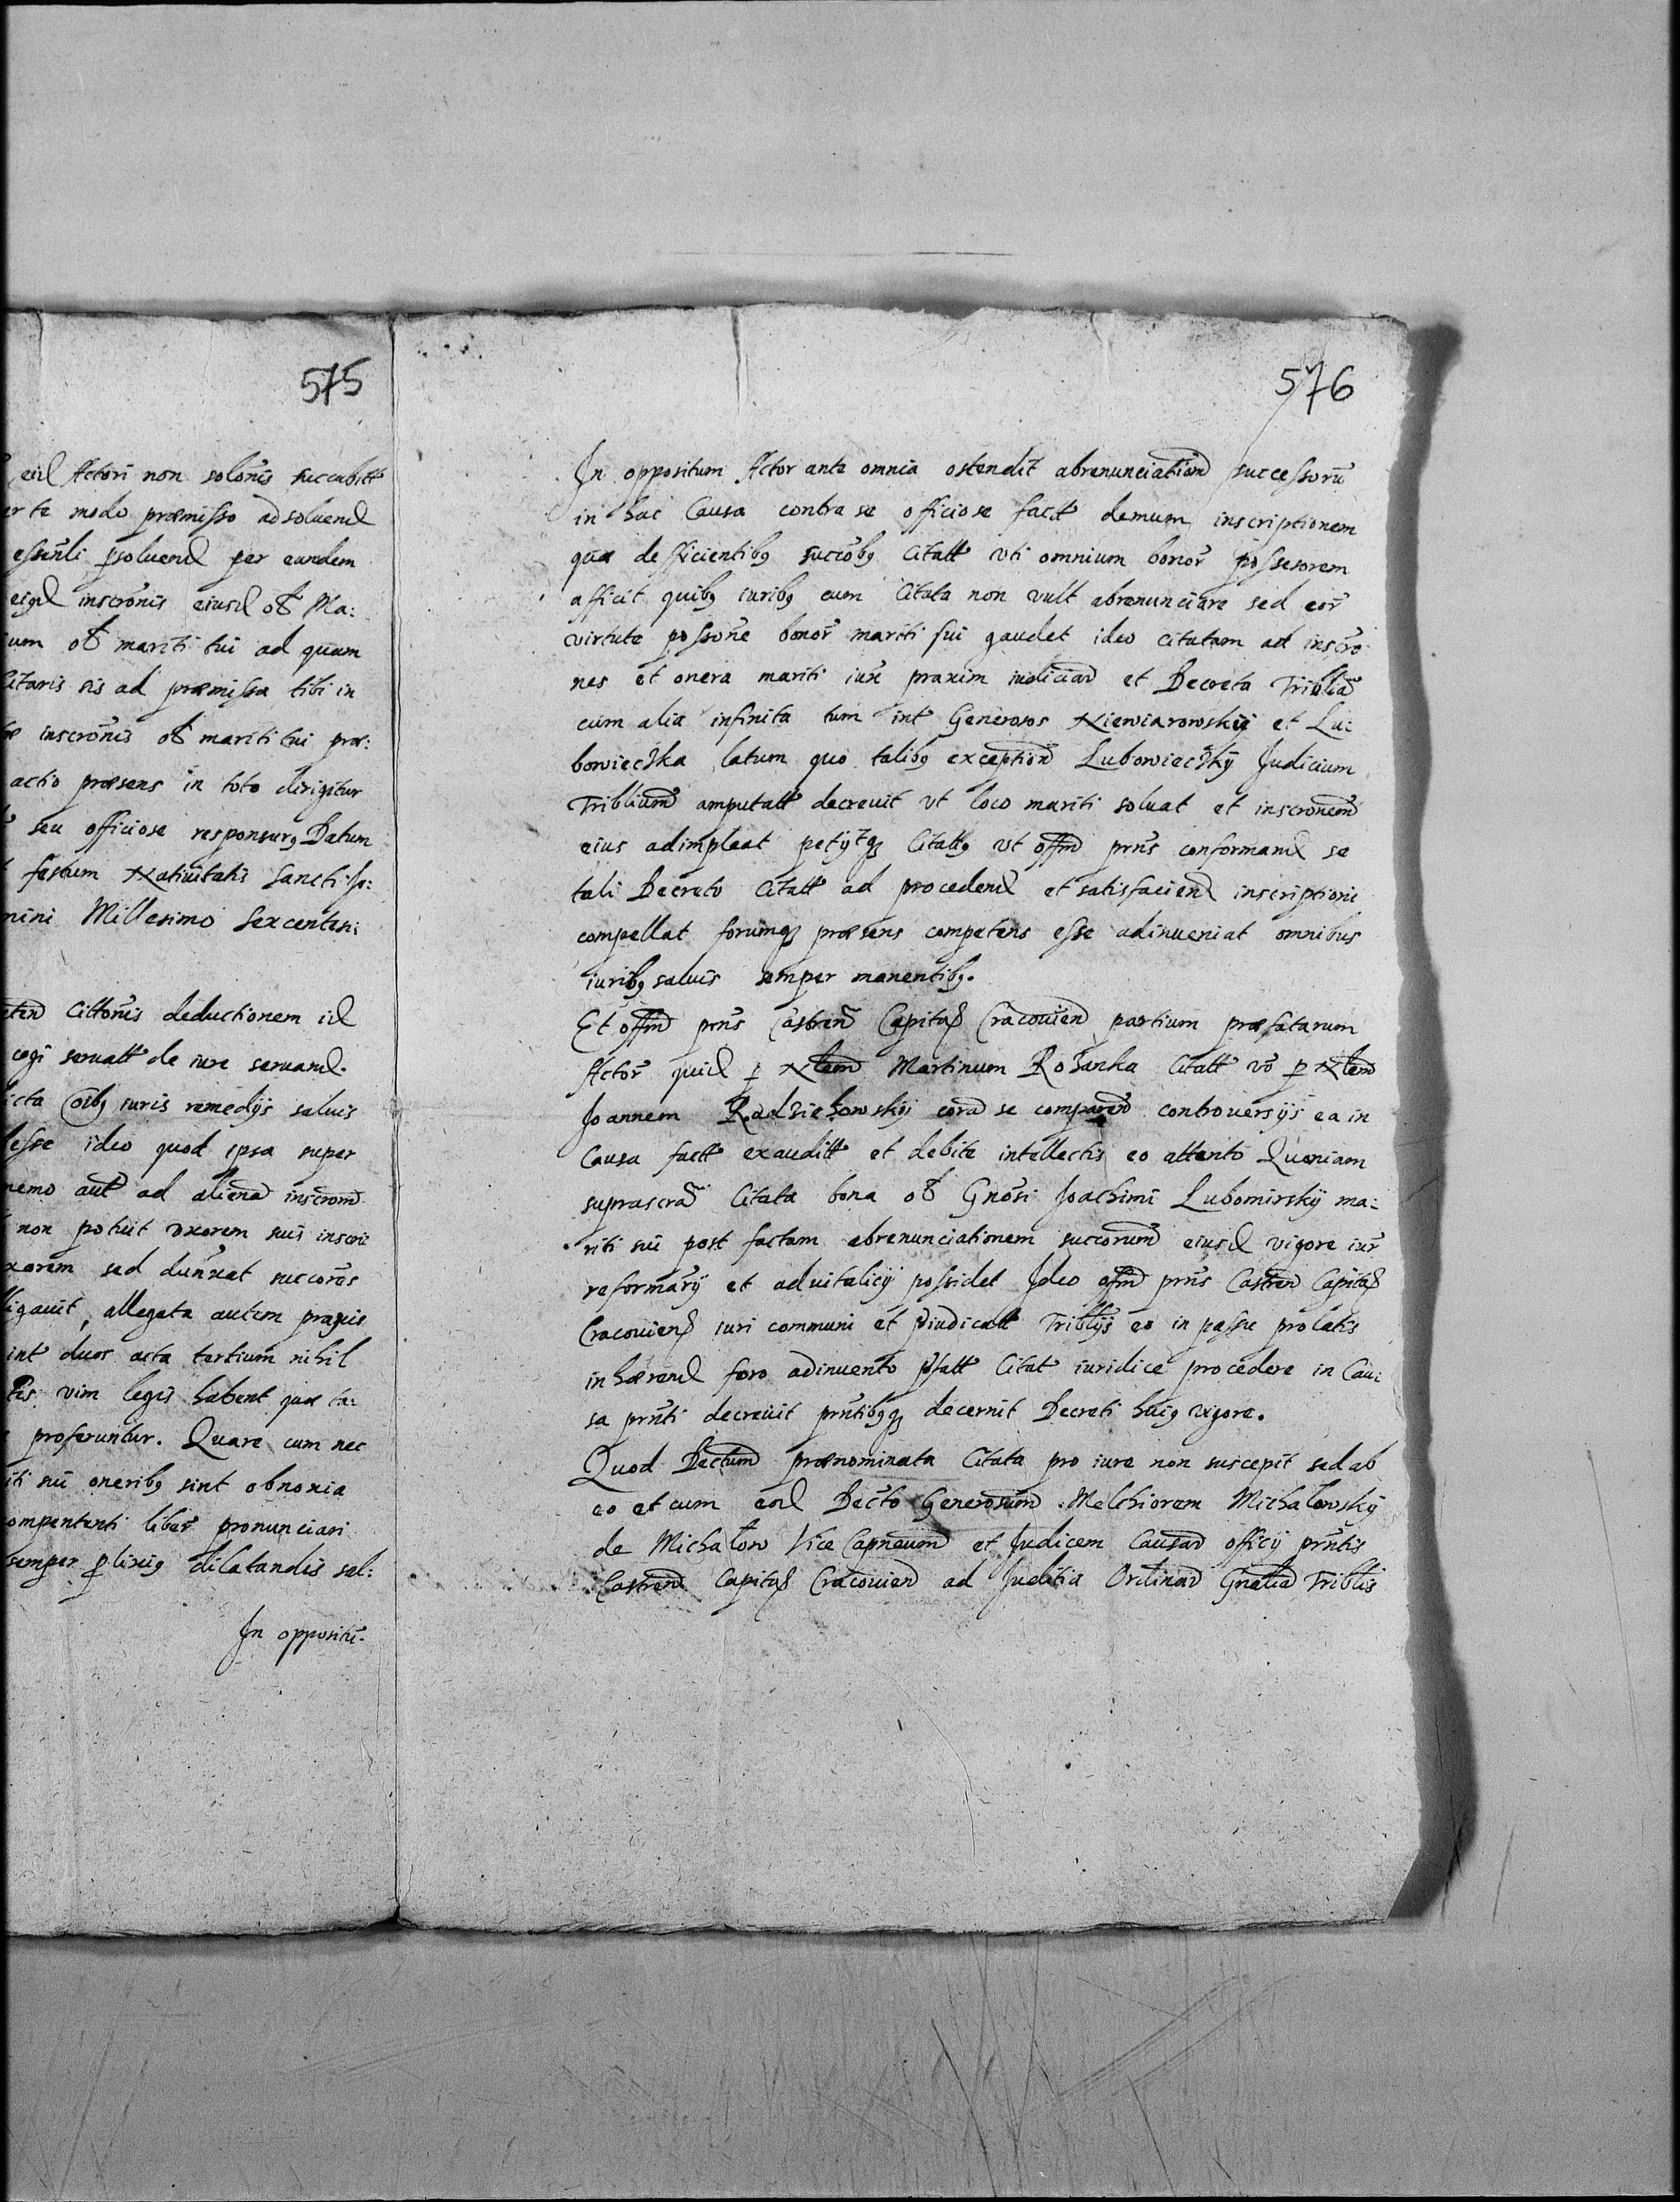 575
eid Actori non solonis succubitt
er te modo præmisso ad soluend
essendi psoluend per eundem
eigd inscronis eiusd olt Ma:
um olt mariti tui ad quam
Citaris sis ad præmissa tibi in
inscronis olt mariti tui præ:
actio præsens in toto dirigitur
seu officiose responsurg Datum
festum Natiuitatis Sancti Jo:
mini Millesimo Sexcentesi:
Cittonis deductionem id
cogi seruatt de iure seruand.
icta Coibg iuris remedijs saluis
esse ideo quod ipsa super
nemo aut ad aliena inscrom
non potuit vxorem suis inscri
xorem sed duntxat succores
ligauit, allegata autem praxis
int duos acta tertium nihil
tis vim legis habent quæ ta:
proferuntur. Quare cum nec
iti sui oneribg sint obnoxia
ompententi liber pronunciari
semper plixig dilatandis sal:
In oppositu.
576
In oppositum Actor ante omnia ostendit abrenunciation successoru
in hac Causa contra se officiose fact demum inscriptionem
quæ defficientibg succobg Citatt vti omnium bonor possesorem
afficit quibg iuribg cum Citata non vult abrenunciare sed eor
virtute possone bonor mariti sui gaudet ideo citatam ad inscro
nes et onera mariti iux praxim iudiciar et Decreta Triblia
cum alia infinita tum int Generosos Niewiarowskij et Lu:
bowieczka latum quo talibg exception Lubowieczkÿ Judicium
Triblium amputatt decreuit vt loco mariti soluat et inscronem
eius adimpleat petijtq Citattg vt offm prns conformand se
tali Decreto Citatt ad procedend et satisfaciend inscriptioni
compellat forumq præsens competens esse adinueniat omnibus
iuribg saluis semper manentibg.
Et offm prns Castren Capitas Cracouien partium præfatarum
Actor quid p Nlem Martinum Rożanka Citatt vo p Nlem
Joannem Radziechowskij cora se comparen controuersijs ea in
Causa factt exauditt et debite intellectis eo attento Quoniam
suprascra Citata bona olt Gnosi Joachimi Lubomirskÿ ma:
riti sui post factam abrenunciationem succorum eiusd vigore iur
reformarij et aduitalicij possidet Jdeo offm prns Castren Capitas
Cracouiens iuri communi et piudicatt Triblijs eo in passu prolatis
inhærend foro adinuento psatt Citat iuridice procedere in Cau:
sa prnti decreuit prntibgq decernit Decreti huig vigore.
Quod Dectum prænominata Citata pro iure non suscepit sed ab
eo et cum eod Decto Generosum Melchiorem Michalowskÿ
de Michalow Vice Capneum et Judicem Causar officij prntis
Castren Capitas Cracouien ad Juditia Ordinar Gnalia Triblis